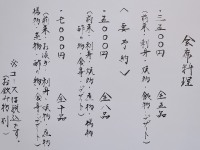 会席料理
・三五〇〇円 全五品
（前菜・刺身・焼物・鍋物・デザート）
＜要予約＞
・五〇〇〇円 全八品
（前菜・刺身・焼物・煮物・揚物
酢の物・食事・デザート）
・七〇〇〇円 全九品
（前菜・お造り・刺身・焼物・煮物
揚物・酢の物・食事・デザート）
※コースは税込です。
（お飲み物別）